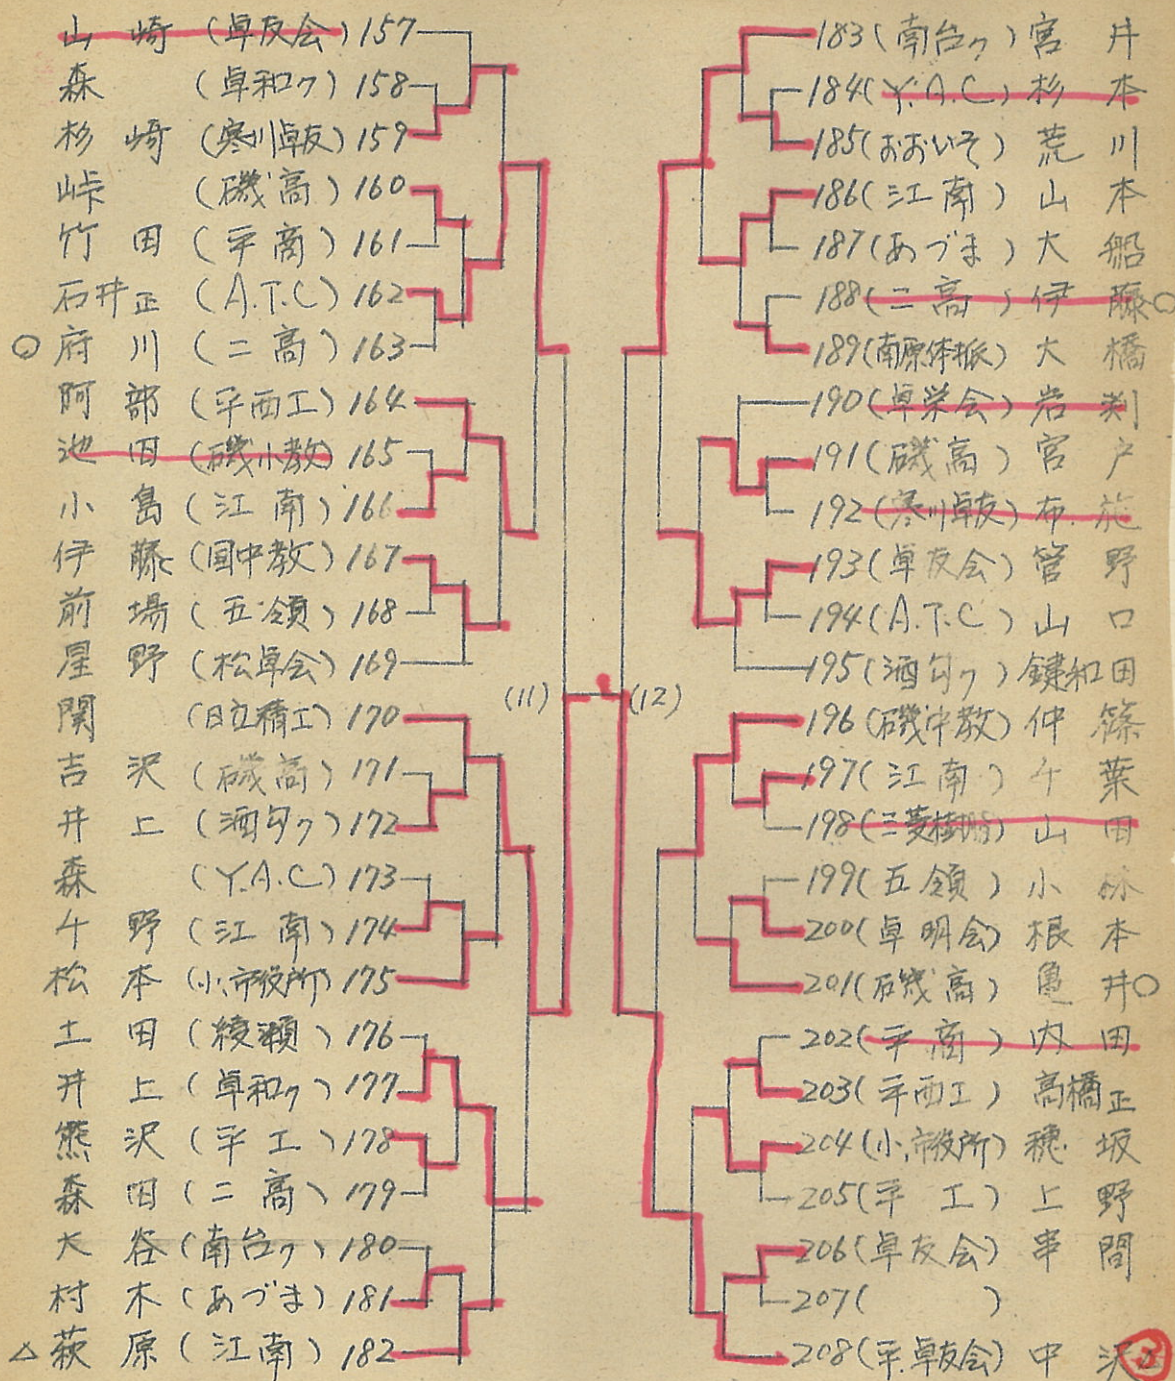 山崎 (卓友会) 157
森 (卓和ク) 158
杉崎 (寒川卓友) 159
峠 (磯高) 160
竹田 (平商) 161
石井正 (A.T.C) 162
○ 府川 (二高) 163
阿部 (平西工) 164
池田 (磯小教) 165
小島 (江南) 166
伊藤 (国中教) 167
前場 (五領) 168
星野 (松卓会) 169
関 (日立精工) 170
吉沢 (磯高) 171
井上 (酒匂ク) 172
森 (Y.A.C) 173
千野 (江南) 174
松本 (小、市役所) 175
土田 (綾瀬) 176
井上 (卓和ク) 177
熊沢 (平工) 178
森田 (二高) 179
大谷 (南台ク) 180
村木 (あづま) 181
△ 萩原 (江南) 182
(11) (12)
183 (南台ク) 宮井
184 (Y.A.C) 杉本
185 (おおいそ) 荒川
186 (江南) 山本
187 (あづま) 大船
188 (二高) 伊藤 ○
189 (南原体振) 大橋
190 (卓栄会) 岩渕
191 (磯高) 宮戸
192 (寒川卓友) 布施
193 (卓友会) 菅野
194 (A.T.C) 山口
195 (酒匂ク) 鍵和田
196 (磯中教) 仲篠
197 (江南) 千葉
198 (三菱樹脂) 山田
199 (五領) 小林
200 (卓明会) 根本
201 (磯高) 亀井 ○
202 (平商) 内田
203 (平西工) 高橋正
204 (小、市役所) 穂坂
205 (平工) 上野
206 (卓友会) 串間
207 ( )
208 (平.卓友会) 中沢 3